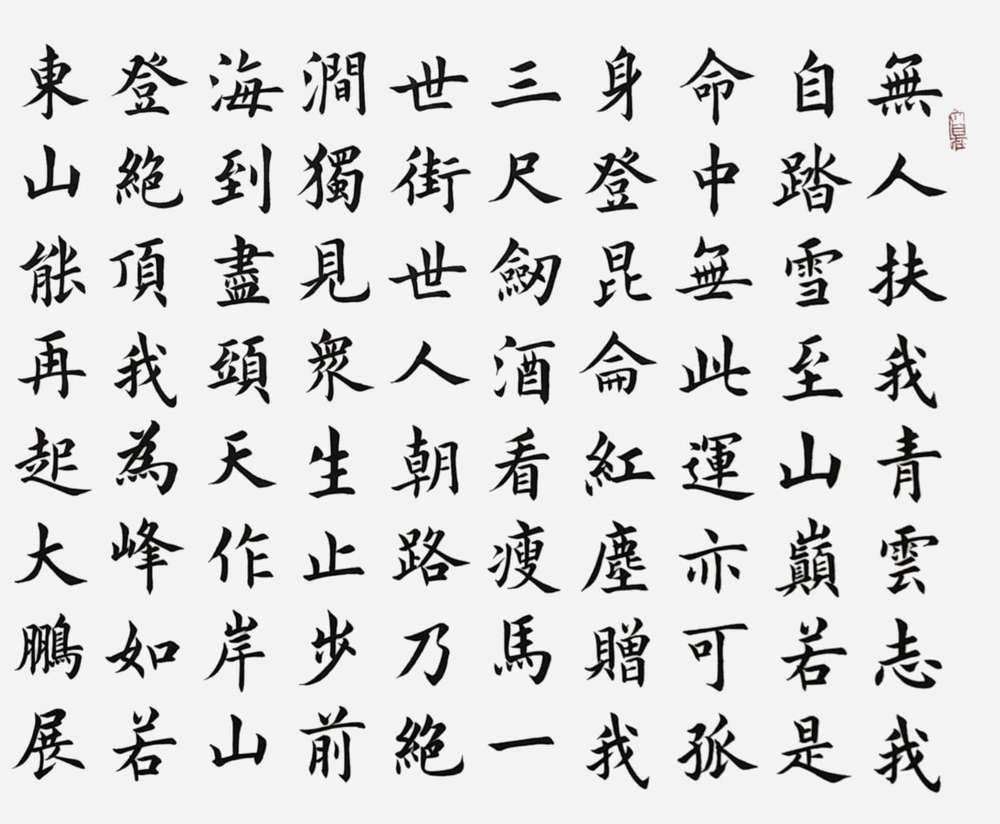 無人扶我青雲志我
自踏雪至山巔若是
命中無此運亦可孤
身登昆侖紅塵贈我
三尺劔酒看瘦馬一
世街世人朝路乃絕
澗獨見眾生止步前
海到盡頭天作岸山
登絕頂我為峰如若
東山能再起大鵬展